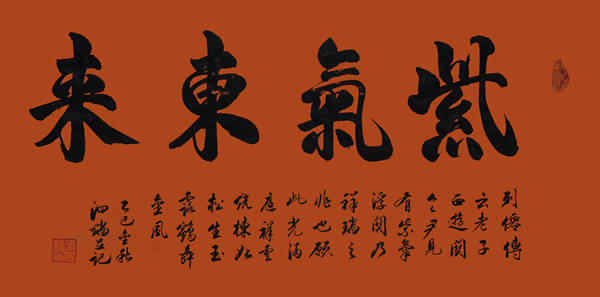 紫氣東来
列僊傳
云老子
西遊関
令尹見
有紫氣
浮関乃
祥瑞之
兆也願
此光滿
庭祥雲
繞棟如
松生玉
露鶴舞
金風
乙巳金秋
泗端並記